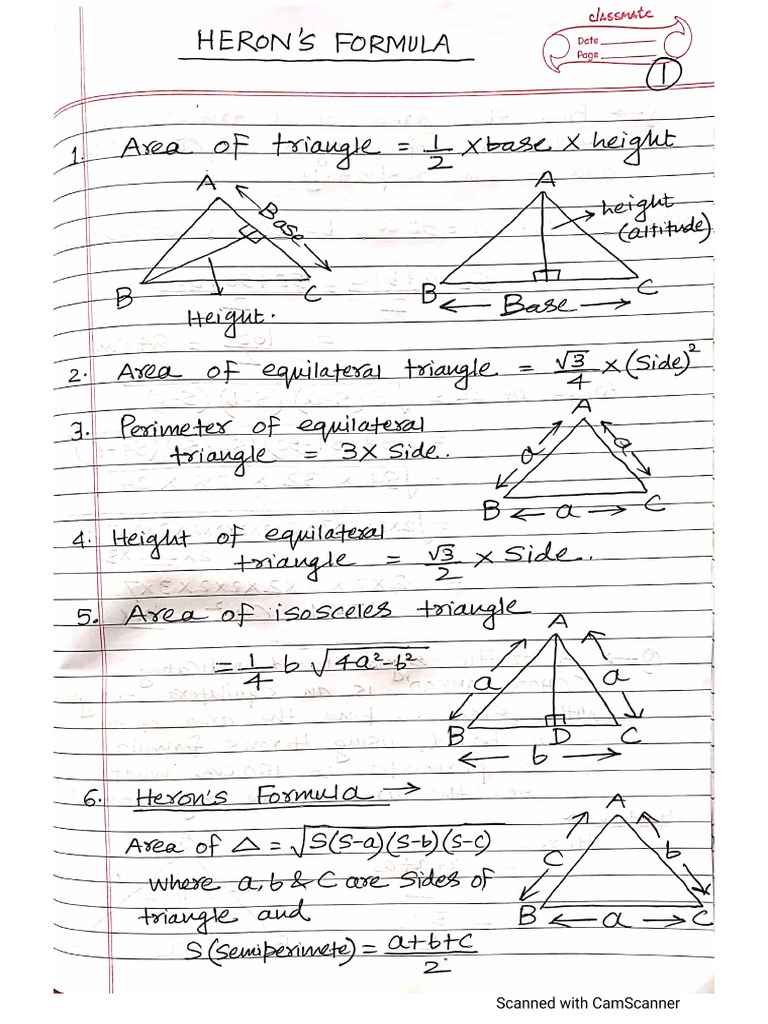 classmate
Date
Page
1
HERON'S FORMULA
1. Area of triangle = 1/2 × base × height
A
Base
B
C
Height.
A
height
(altitude)
B
C
Base
2. Area of equilateral triangle = √3/4 × (Side)²
3. Perimeter of equilateral
triangle = 3 × Side.
A
a
a
B
C
a
4. Height of equilateral
triangle = √3/2 × Side.
5. Area of isosceles triangle
= 1/4 b √4a²-b²
A
a
a
B
D
C
b
6. Heron's Formula →
Area of △ = √S(S-a)(S-b)(S-c)
where a, b & C are sides of
triangle and
S (Semiperimete) = a+b+c/2
A
C
b
B
a
C
Scanned with CamScanner